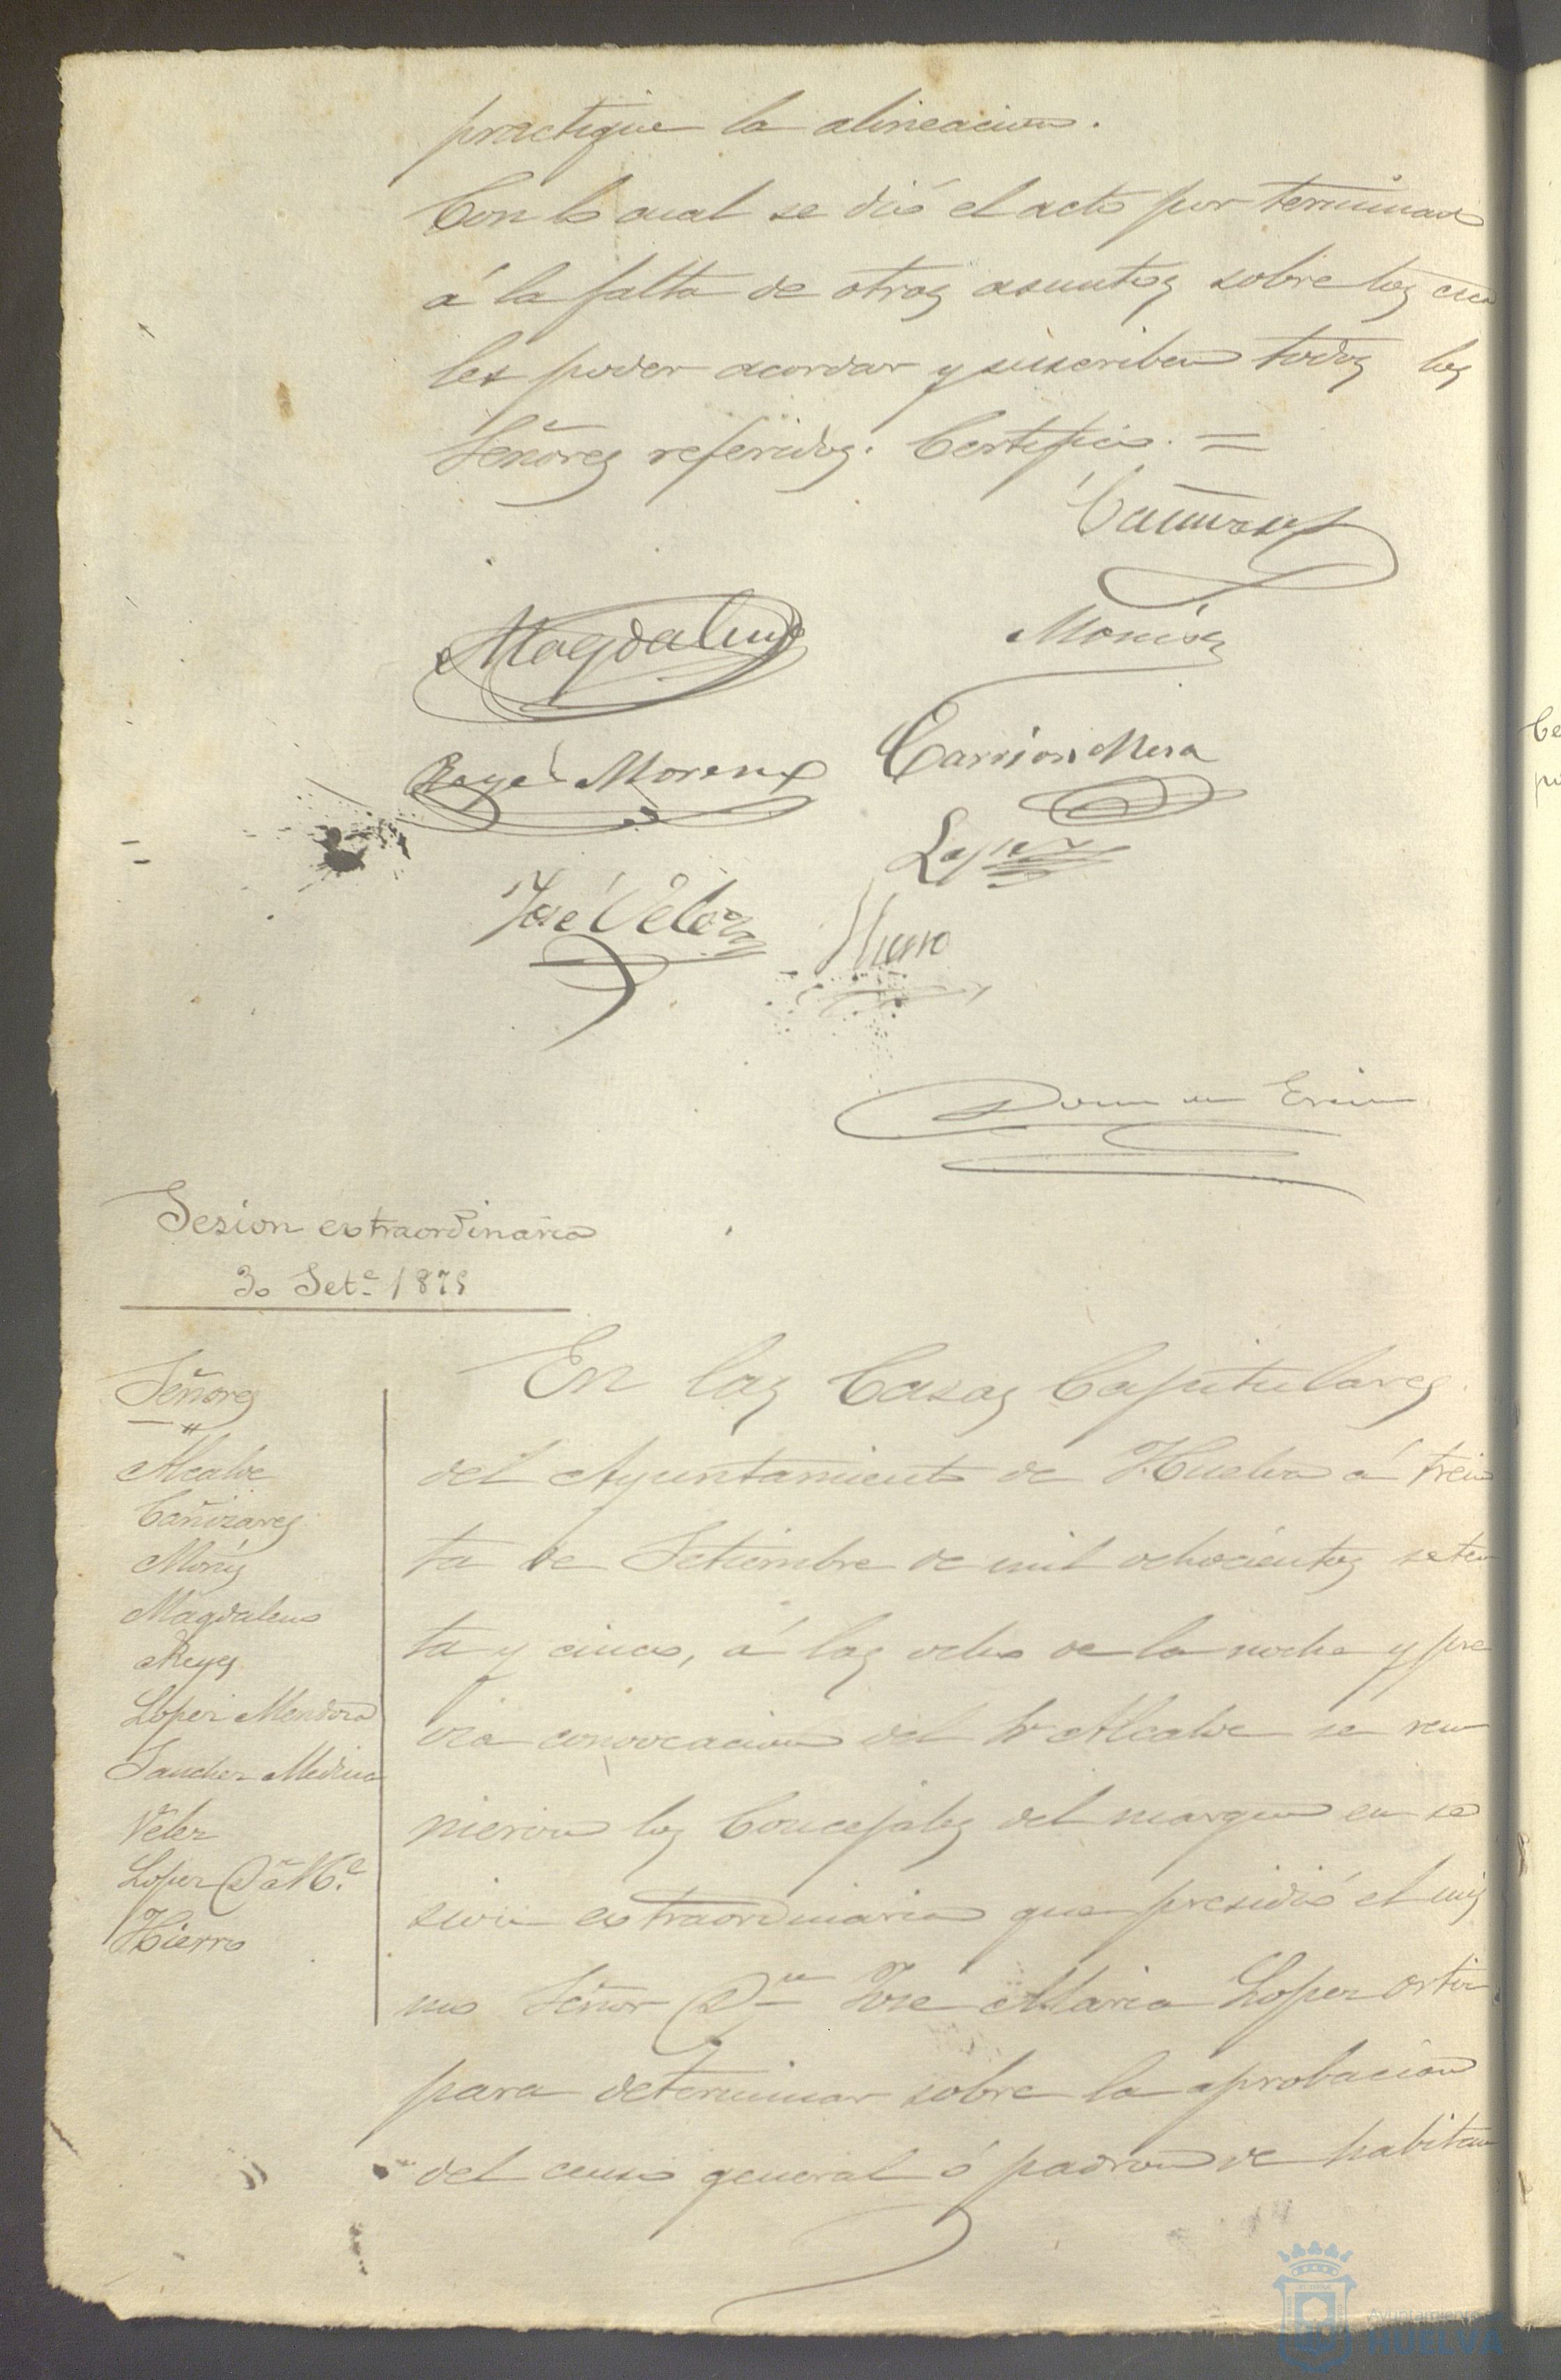 practique la alineacion.
Con lo cual se dió el acto por terminado
á la falta de otros asuntos sobre los cua
les poder acordar y suscriben todos los
Señores referidos. Certifico. =
Cañizares
Magdaleno
Monís
Reyes Moreno
Carrion Mera
Lopez
José Vélez
Hierro
Sesion extraordinaria
30 Set.e 1875
Señores
Alcalde
Cañizares
Monís
Magdaleno
Reyes
Lopez Mendoza
Sanchez Medina
Velez
Lopez D.n M.l
Hierro
En las Casas Capitulares
del Ayuntamiento de Huelva á trein
ta de Setiembre de mil ochocientos seten
ta y cinco, á las ocho de la noche y pre
via convocacion del Sr Alcalde se reu
nieron los Concejales del margen en se
sion extraordinaria que presidió el mis
mo Señor D.n José Maria Lopez Ortiz
para determinar sobre la aprobacion
del censo general ó padron de habitan
Ayuntamiento
HUELVA